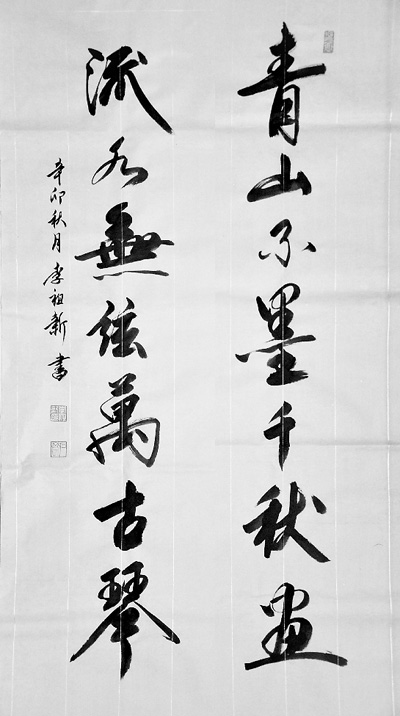 青山不墨千秋畫
流水無弦萬古琴
辛卯秋月李祖新書